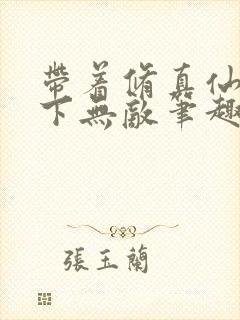 帶着脩真仙
下無敵筆趣
張玉蘭